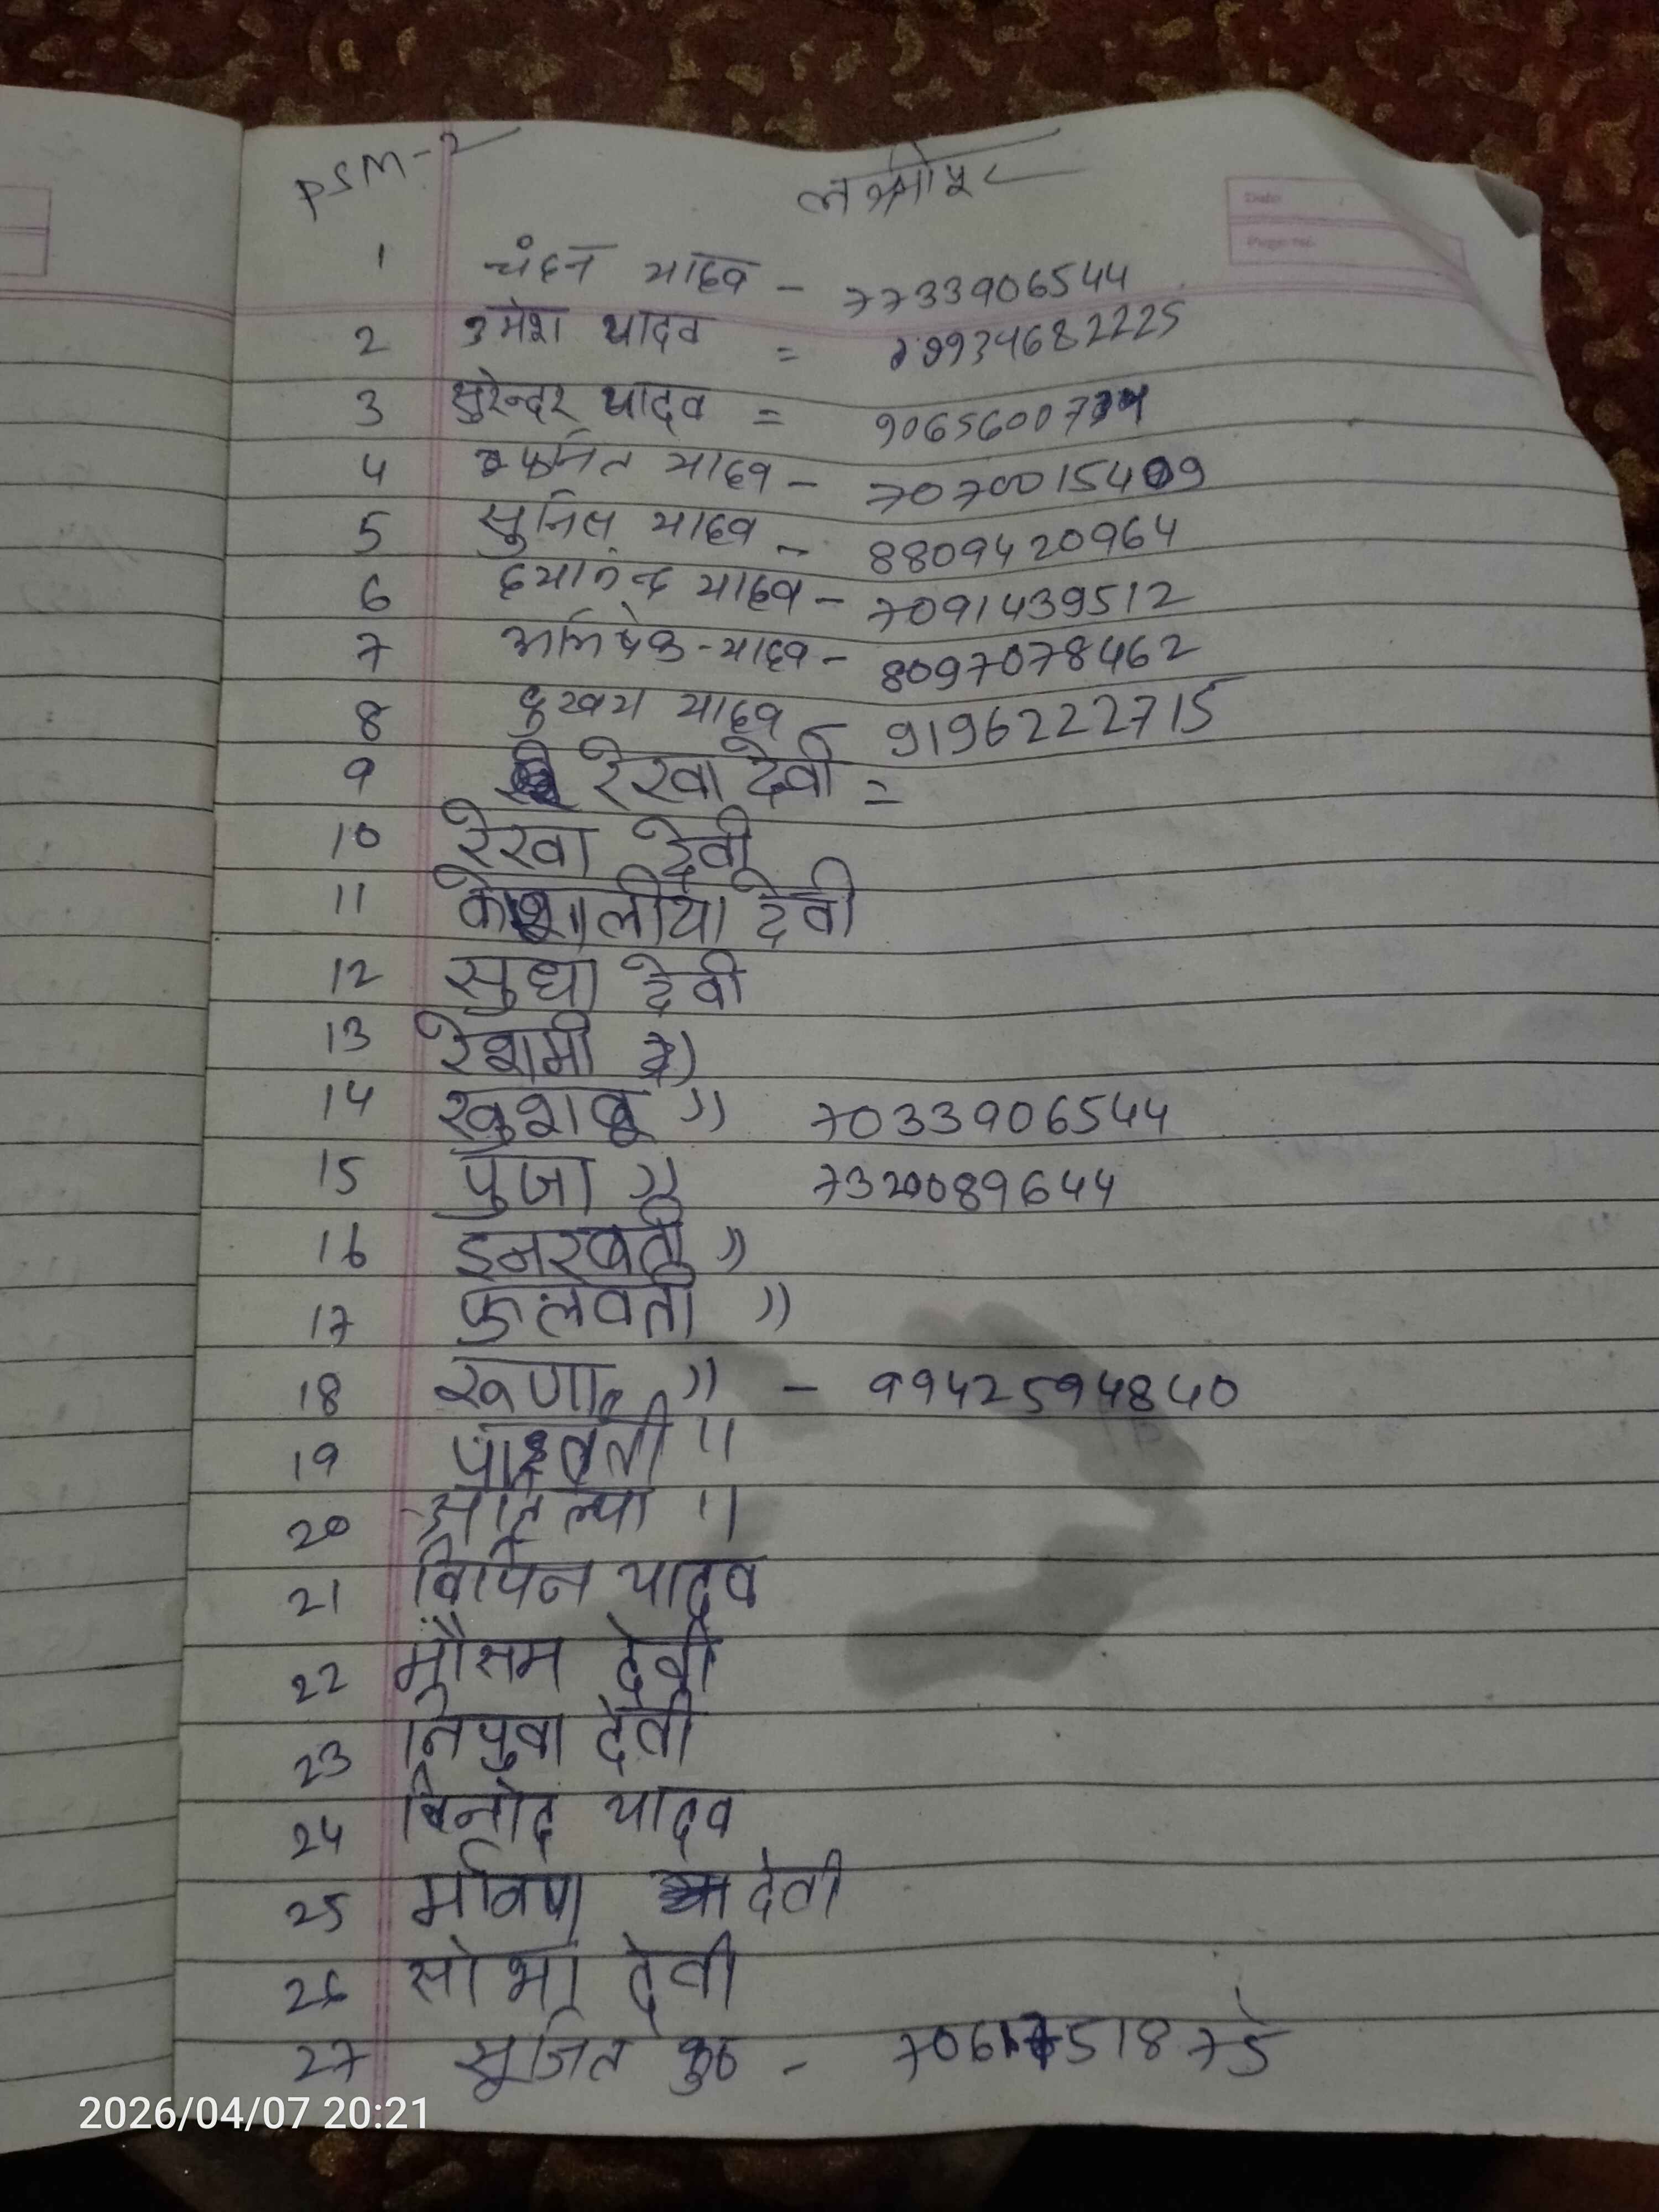 PSM-2
1 चंदन यादव - 7733906544
2 उमेश यादव = 9934682225
3 सुरेन्दर यादव =
4 यादव - 7070015409
5 सुनिल यादव - 8809420964
6 दयानन्द यादव - 7091439512
7 अभिषेक-यादव - 8097078462
8 यादव - 9196222715
9 रेखा देवी =
10 रेखा देवी
11 कोशालीया देवी
12 सुधा देवी
13 रेशमी
14 खुशबू " 7033906544
15 पुजा " 7320089644
16 इनरबती "
17 फुलवती "
18 रूणा " - 9942594840
19 "
20 "
21 विपिन यादव
22 मौसम देवी
23 देवी
24 बिनोद यादव
25 देवी
26 सोभा देवी
27 सूजित कु०
Date
Page no.
2026/04/07 20:21